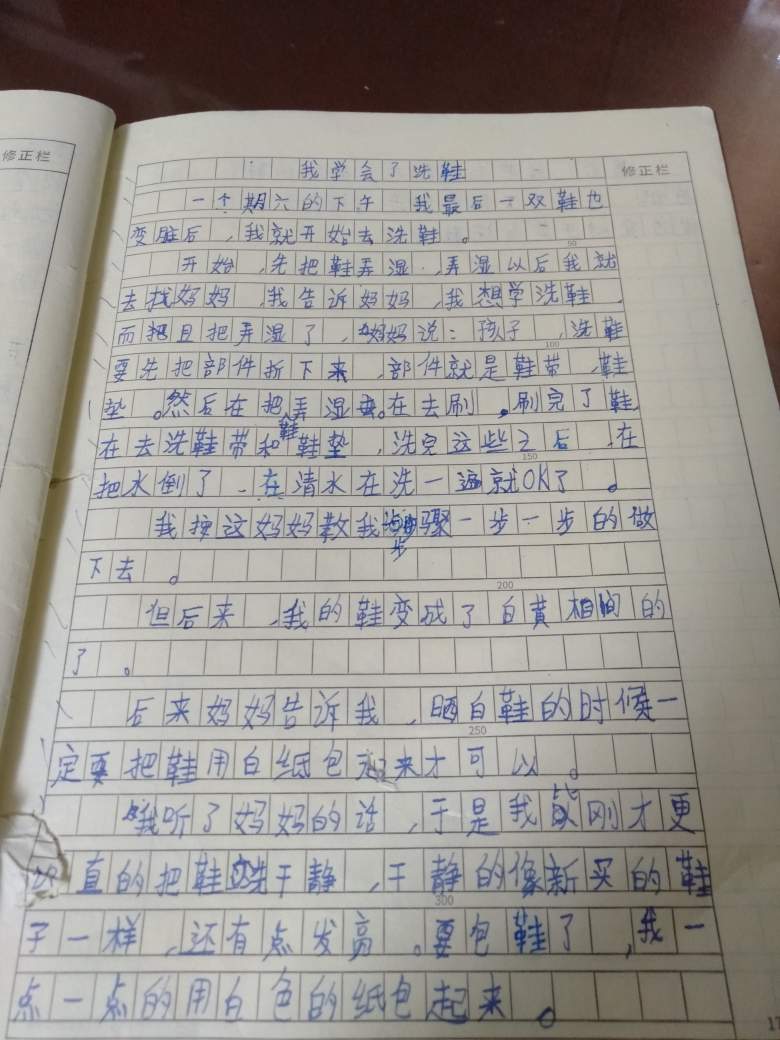 修正栏
我学会了洗鞋
修正栏
一个期六的下午 我最后一双鞋也
变脏后,我就开始去洗鞋。
50
开始,先把鞋弄湿,弄湿以后我就
去找妈妈,我告诉妈妈,我想学洗鞋,
而且把弄湿了,妈妈说:孩子,洗鞋
100
要先把部件折下来,部件就是鞋带,鞋
垫。然后在把鞋弄湿。在去刷,刷完了鞋,
在去洗鞋带和鞋垫,洗完这些之后,在
150
把水倒了,在清水在洗一遍就OK了。
我按这妈妈教我步骤一步一步的做
下去。
200
但后来,我的鞋变成了白黄相间的
了。
后来妈妈告诉我,晒白鞋的时候一
250
定要把鞋用白纸包起来才可以。
我听了妈妈的话,于是我比刚才更
直的把鞋洗干静,干静的像新买的鞋
300
子一样,还有点发高。要包鞋了,我一
点一点的用白色的纸包起来。
17